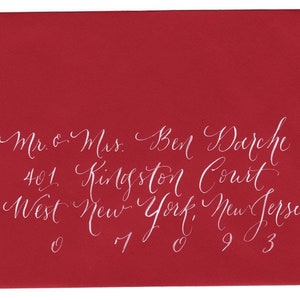 Mr. & Mrs. Ben Darche
401 Kingston Court
West New York, New Jerse
0 7 0 9 3